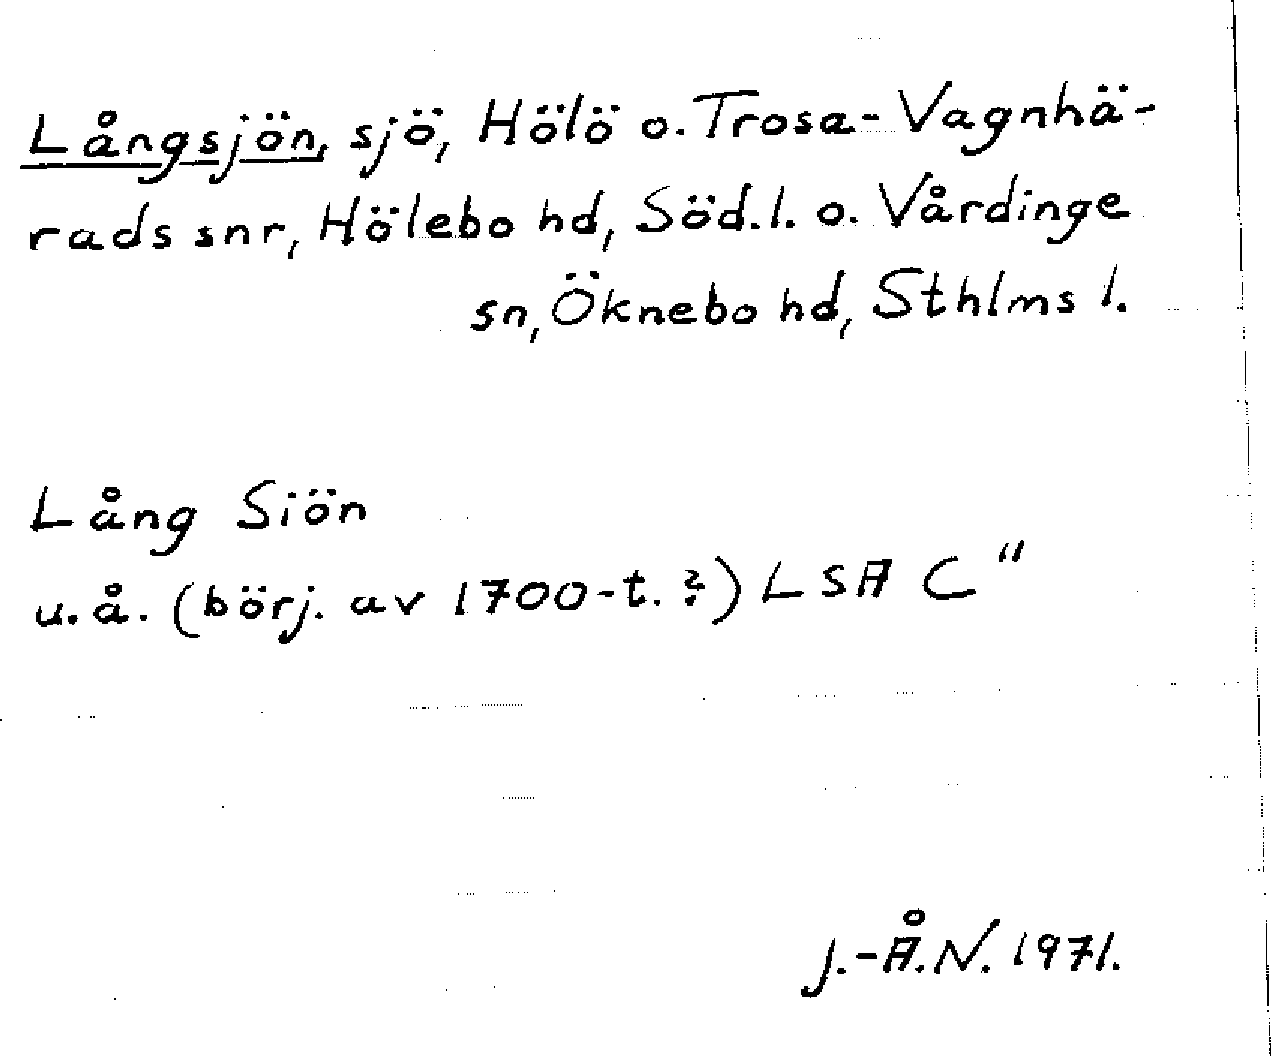 Långsjön, sjö, Hölö o. Trosa-Vagnhä-
rads snr, Hölebo hd, Söd.l. o. Vårdinge
sn, Öknebo hd, Sthlms l.
Lång Siön
u.å. (börj. av 1700-t.?) LSA C"
J.-Å.N. 1971.